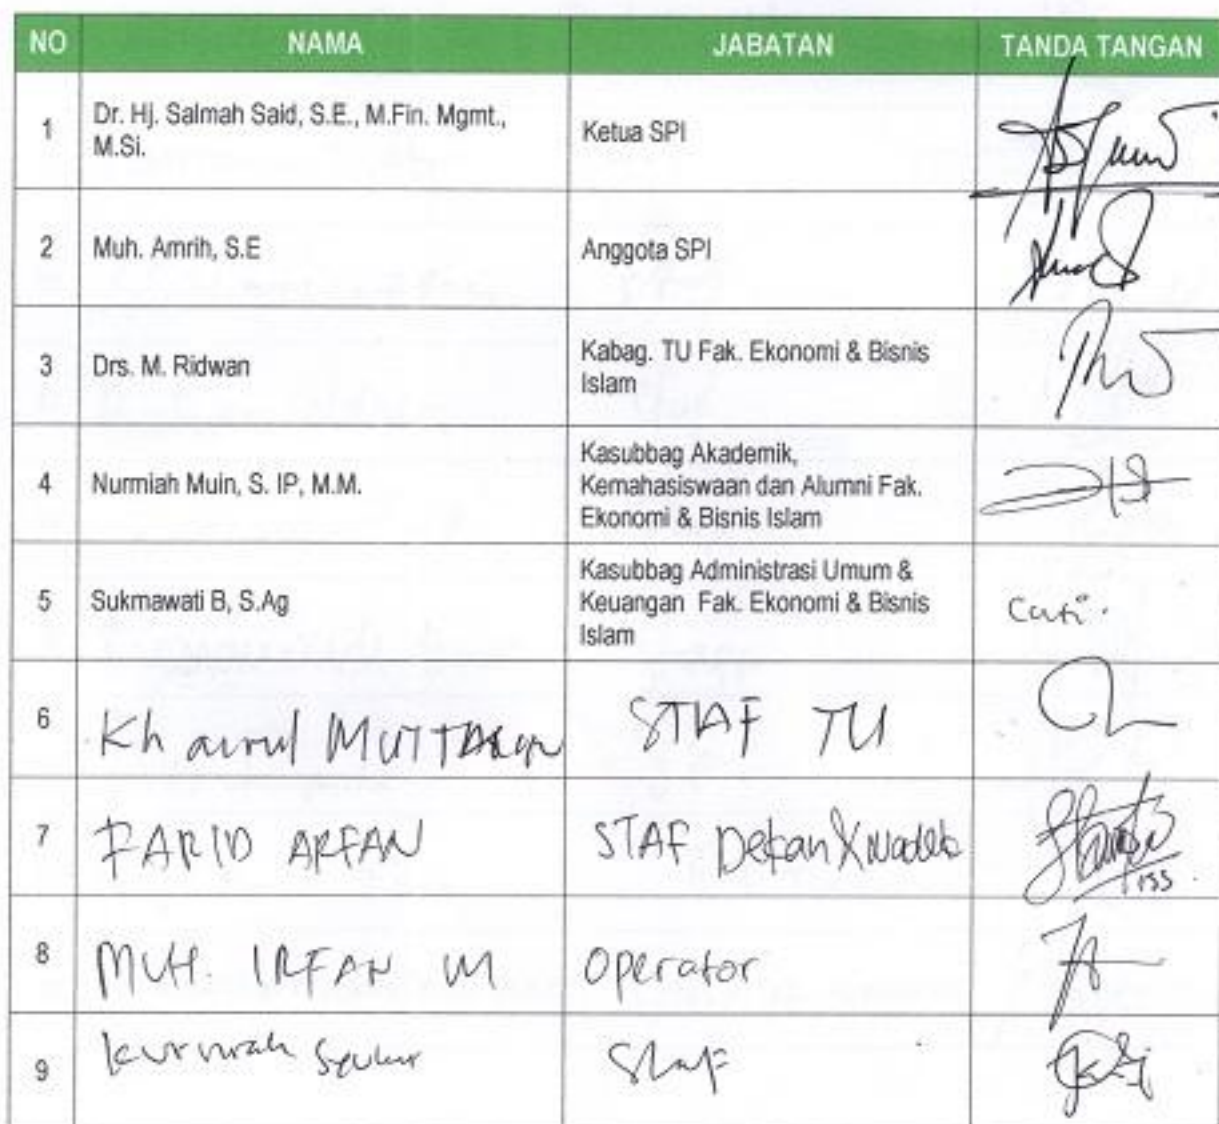 NO NAMA JABATAN TANDA TANGAN
1 Dr. Hj. Salmah Said, S.E., M.Fin. Mgmt.,
M.Si. Ketua SPI
2 Muh. Amrih, S.E Anggota SPI
3 Drs. M. Ridwan Kabag. TU Fak. Ekonomi & Bisnis
Islam
4 Nurmiah Muin, S. IP, M.M. Kasubbag Akademik,
Kemahasiswaan dan Alumni Fak.
Ekonomi & Bisnis Islam
5 Sukmawati B, S.Ag Kasubbag Administrasi Umum &
Keuangan Fak. Ekonomi & Bisnis
Islam Cuti.
6 STAF TU
7 FARID ARFAN STAF Dekan
8 MUH. IRFAN M Operator
9 Staf